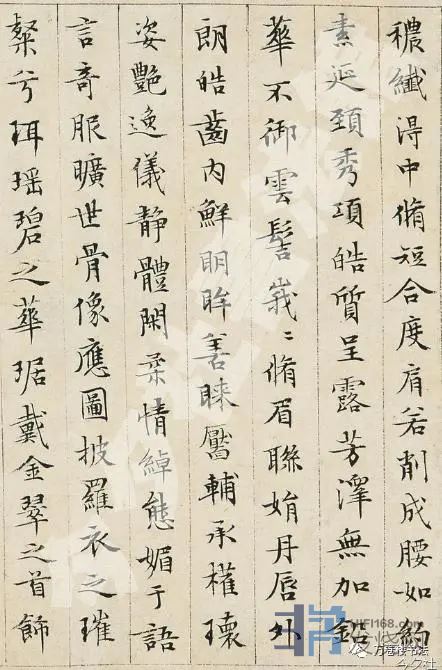 穠纖得中脩短合度肩若削成腰如約
素延頸秀項皓質呈露芳澤無加鉛
華不御雲髻峩〻脩眉聯娟丹唇外
朗皓齒内鮮明眸善睞靨輔承權瓌
姿艷逸儀静體閑柔情綽態媚于語
言奇服曠世骨像應圖披羅衣之璀
粲兮珥瑶碧之華琚戴金翠之首飾
HIFI168.com